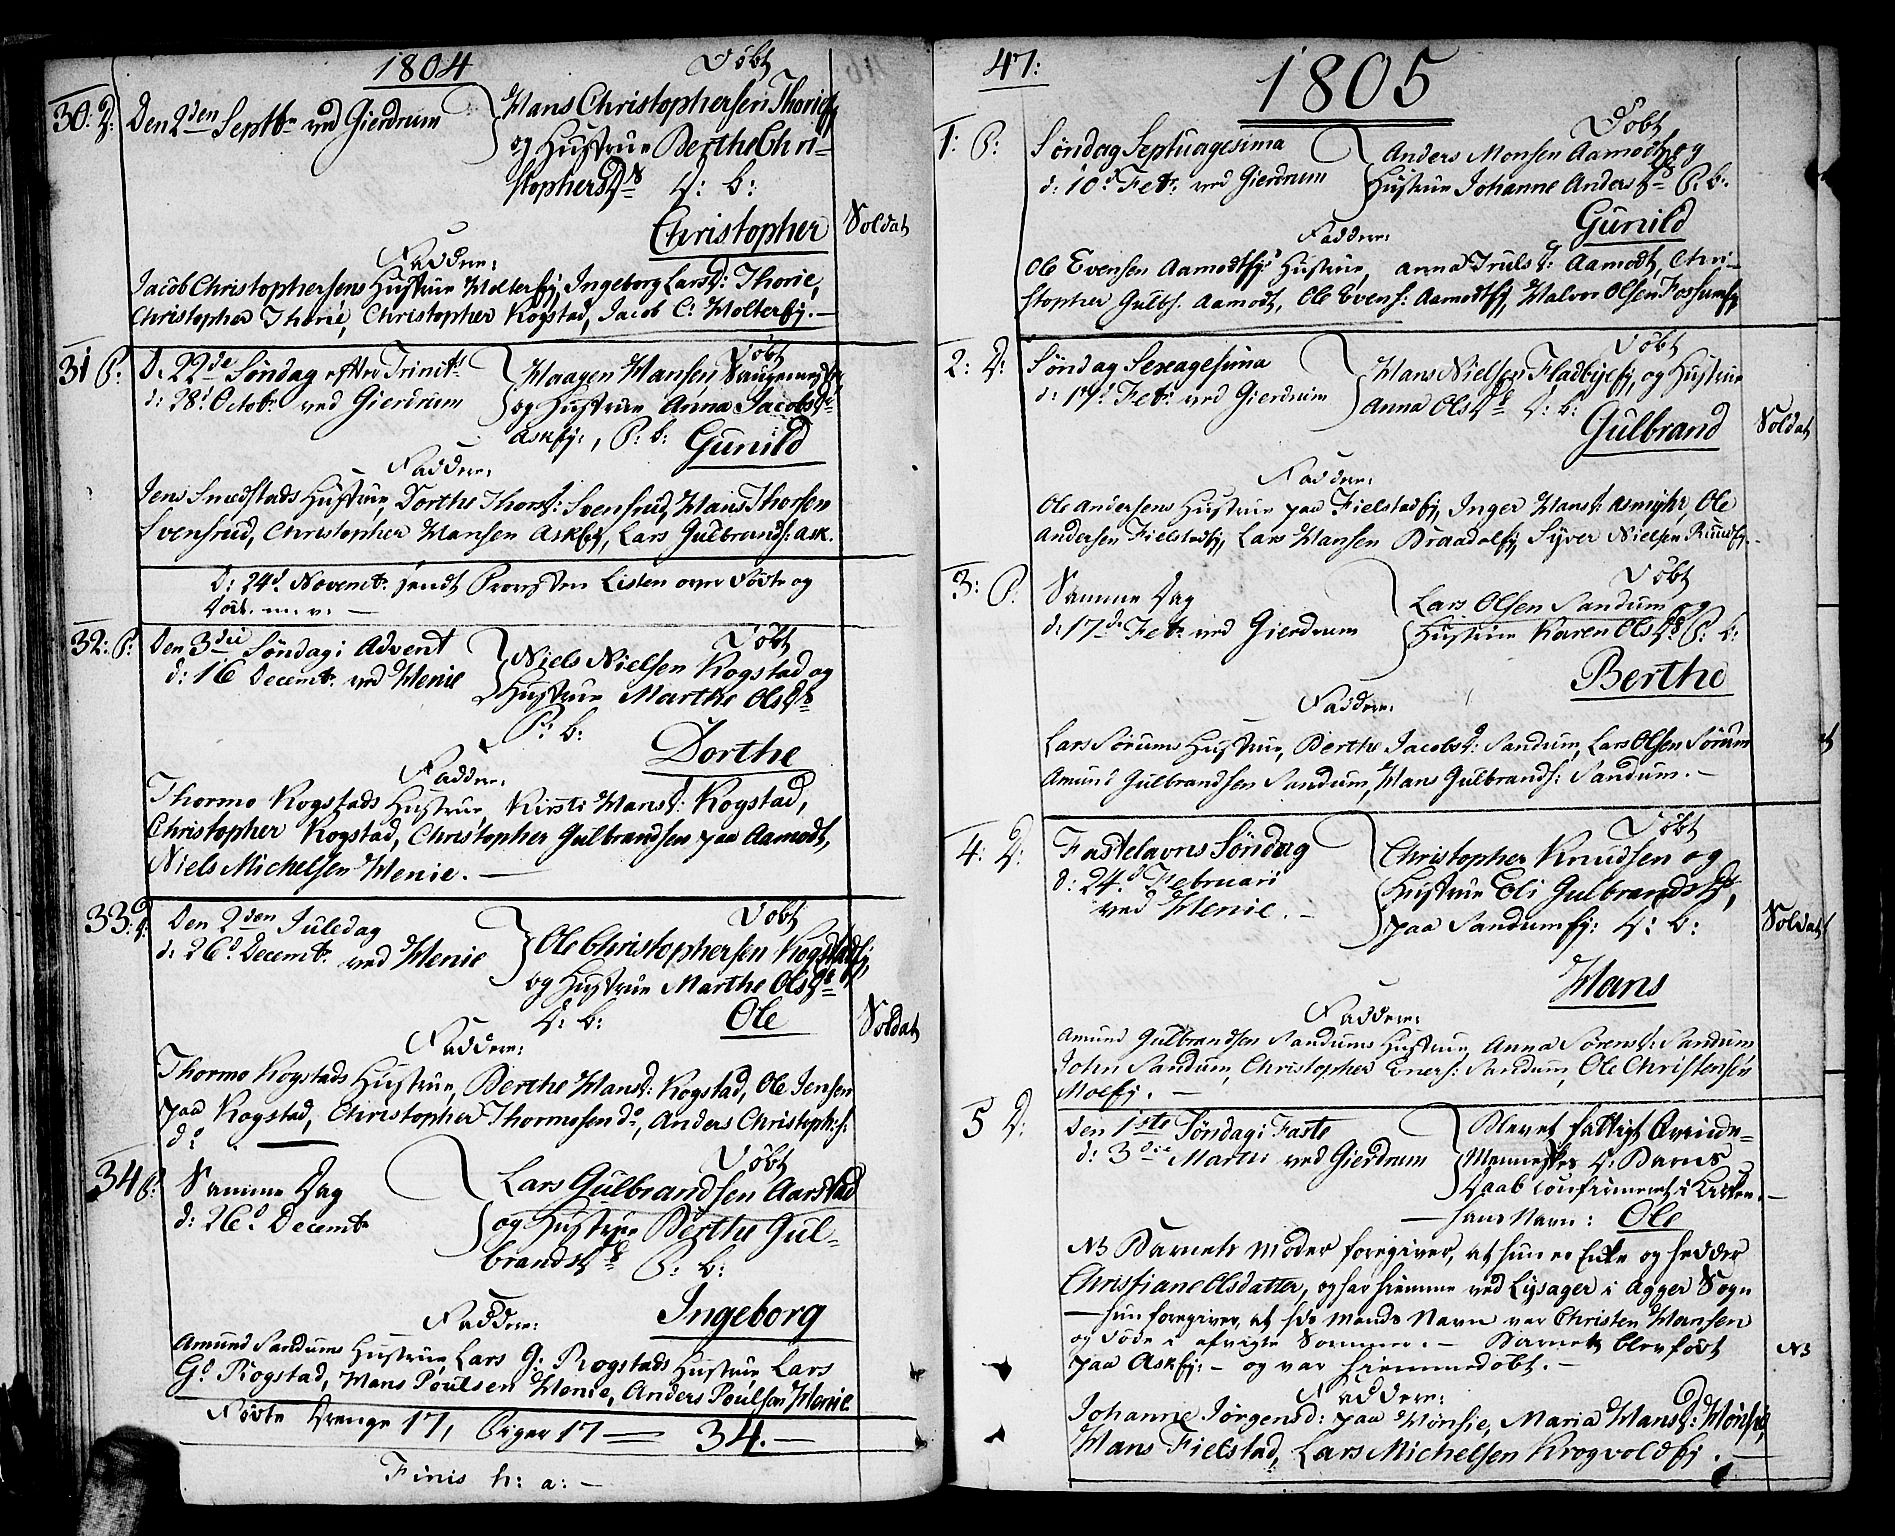 1804
Døbt
30: D: Den 2den Septbr ved Gierdrum
Hans Christophersen Thoriefj
og Hustrue Berthe Chri-
stophersdr D: b:
Christopher
Soldat
Faddere:
Jacob Christophersens Hustrue Holterfj, Ingeborg Larsd: Thorie,
Christopher Thorie, Christopher Kogstad, Jacob C: Holterfj. —
Døbt
31 P: D. 22de Søndag efter Trinits
d: 28d Octobr ved Gierdrum
Haagen Hansen
og Hustrue Anna Jacobsdr
Askfj:, P: b: Gunild
Faddere:
Jens Smedstads Hustrue, Dorthe Thorsd: Svensrud, Hans Thorsen
Svensrud, Christopher Hansen Askfj, Lars Gulbrands: Ask.
D: 24d Novembr sendt Provsten Listen over Fødte og
Døde m. v. —
32: P: Den 3die Søndag i Advent
d: 16 Decembr ved Henie
Døbt
Niels Nielsen Kogstad og
Hustrue Marthe Olsdr
P: b:
Dorthe
Faddere:
Thormo Kogstads Hustrue, Kirsti Hansd: Kogstad,
Christopher Kogstad, Christopher Gulbrandsen paa Aamodt,
Niels Michelsen Henie. —
33: D: Den 2den Juledag
d: 26d Decembr ved Henie
Døbt
Ole Christophersen Kogstadfj,
og Hustrue Marthe Olsdr
D: b: Ole
Soldat
Faddere:
Thormo Kogstads Hustrue, Berthe Hansd: Kogstad, Ole Jensen
paa Kogstad, Christopher Thormosen do, Anders Christoph: s:
do
34 P: Samme Dag
d: 26d Decembr
Døbt
Lars Gulbrandsen Aarstad
og Hustrue Berthe Gul-
brandsdr P: b:
Ingeborg
Faddere:
Amund Sandums Hustrue, Lars G: Rogstads Hustrue, Lars
G: Rogstad, Hans Poulsen Henie, Anders Poulsen Henie
Fødte Drenge 17, Piger 17 — 34. —
Finis h: a: —
47:
1805
Døbt
1: P: Søndag Septuagesima
d: 10d Febr. ved Gierdrum
Anders Monsen Aamodt og
Hustrue Johanne Andersdr P: b:
Gunild
Faddere:
Ole Evensen Aamodtfjs Hustrue, Anna Trulsd: Aamodt, Chri-
stopher Gulbs. Aamodt, Ole Evens: Aamodtfj, Halvor Olsen Fossumfj
2: D: Søndag Sexagesima
d: 17d Febr ved Gierdrum
Døbt
Hans Nielsen Fladbyefj, og Hustrue
Anna Olsdr D: b:
Gulbrand
Soldat
Faddere:
Ole Andersens Hustrue paa Fielstadfj, Inger Hansd: Asmyhr, Ole
Andersen Fielstadfj, Lars Hansen Braadolfj, Syver Nielsen Ruudfj. —
3: P: Samme Dag
d: 17de Febr ved Gierdrum
Døbt
Lars Olsen Sandum og
Hustrue Karen Olsdr P: b:
Berthe
Faddere:
Lars Sørums Hustrue, Berthe Jacobsd: Sandum, Lars Olsen Sørum
Amund Gulbrandsen Sandum, Hans Gulbrands: Sandum. —
4: D: Fastelavns Søndag
d: 24d Februari
ved Henie. —
Døbt
Christopher Knudsen og
Hustrue Eli Gulbrandsdr,
paa Sandumfj: D: b:
Hans
Soldat
Faddere:
Amund Gulbrandsen Sandums Hustrue, Anna Sørensd: Sandum
John Sandum, Christopher Eners: Sandum, Ole Christensen
Moefj. —
5 D: Den 1ste Søndag i Faste
d: 3die Martii ved Gierdrum
Blevet fattigt Qvinde-
Menneskes D: Barns
Daab confirmeret i Kirken. —
— hans Navn: Ole
NB Barnets Moder foregiver, at hun er Enke og hedder
Christiane Olsdatter, og har hiemme ved Lysager i Agger Sogn
— hun foregiver, at hds Mands Navn var Christen Hansen
og døde i afvigte Sommer. — Barnet blev født
paa Askfj: — og var hiemmedøbt. —
NB
Faddere:
Johanne Jørgensd: paa Hønsie, Maria Hansd: Hønsie,
Hans Fielstad, Lars Michelsen Krogvoldfj. —